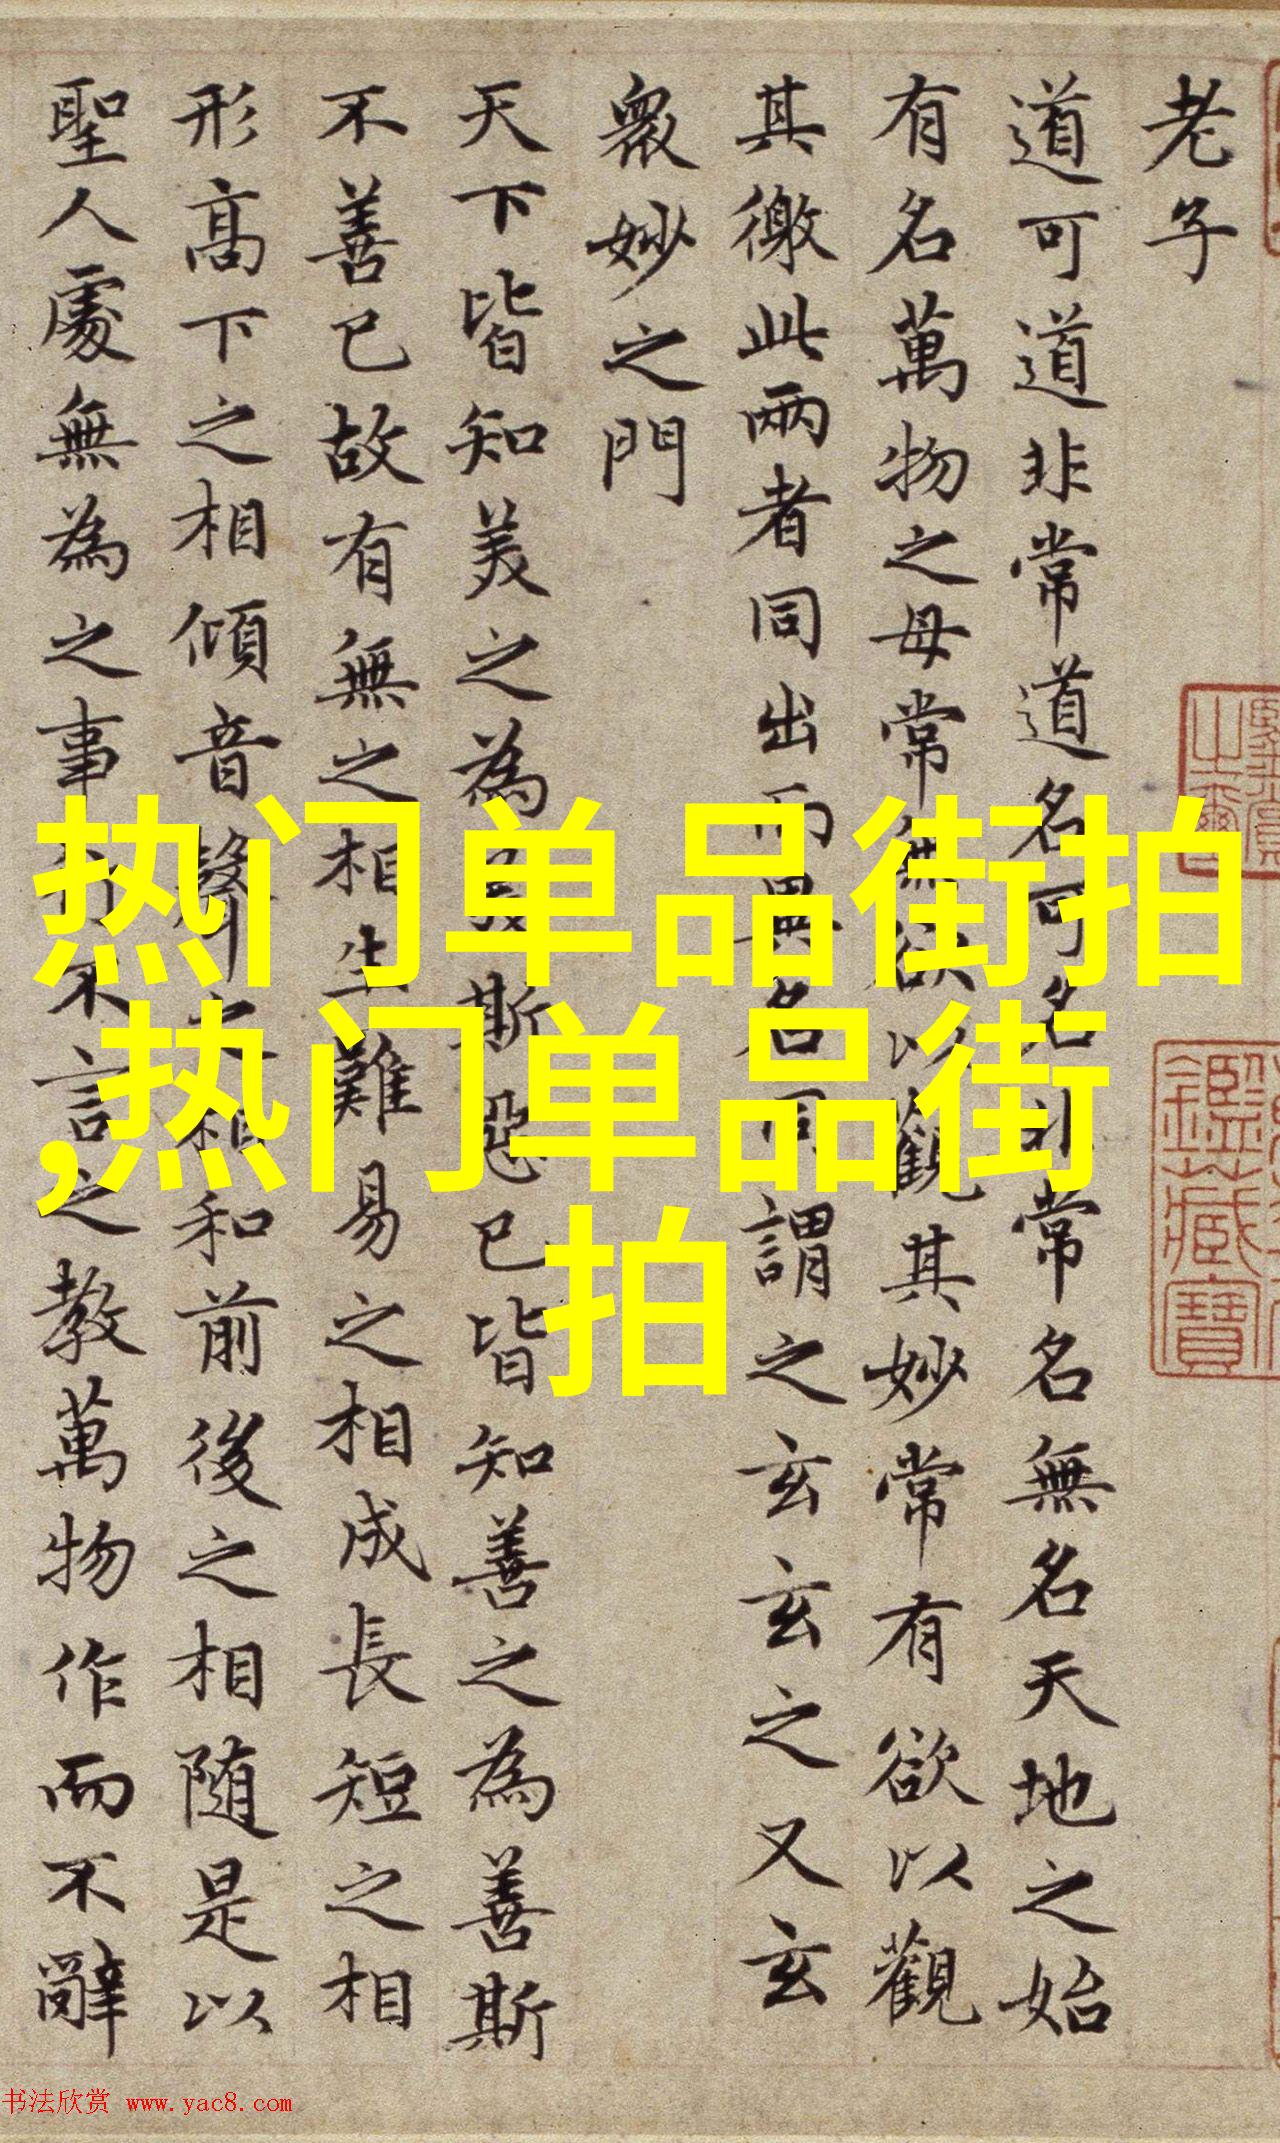 老子
道可道非常道名可名非常名無名天地之始
有名萬物之母常無欲以觀其妙常有欲以觀
其徼此兩者同出而異名同謂之玄玄之又玄
衆妙之門
天下皆知美之為美斯惡已皆知善之為善斯
不善已故有無之相生難易之相成長短之相
形高下之相傾音聲之相和前後之相随是以
聖人處無為之事行不言之教萬物作而不辭
热门单品街拍
,热门单品街
拍
鑑藏寶
书法欣赏 www.yac8.com